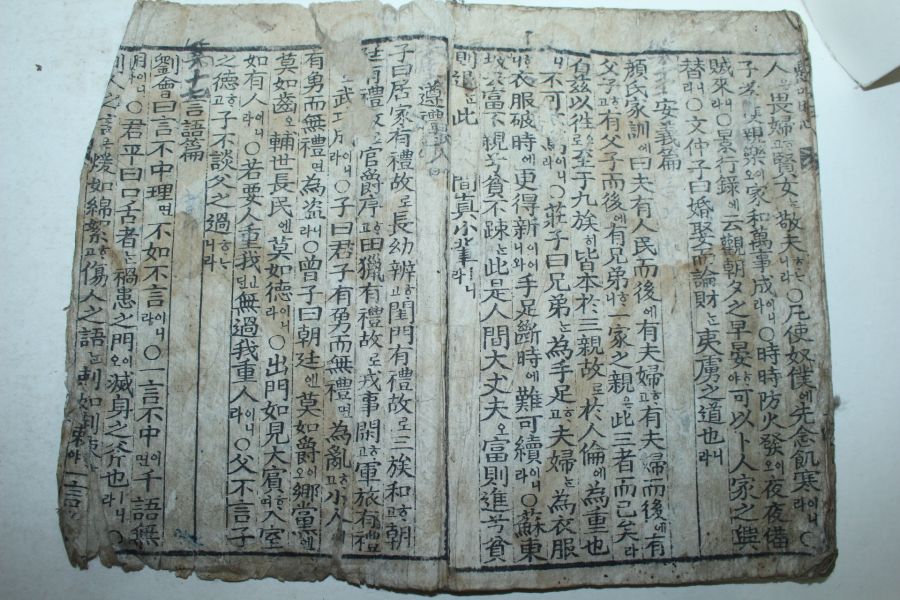 人은畏婦고賢女는敬夫니라○凡使奴僕에先念飢寒이니라○
子孝雙親樂이오家和萬事成이라○時時防火發오夜夜備
賊來라○景行錄에云觀朝夕之早晏야可以卜人家之興
替라○文仲子曰婚娶而論財는夷虜之道也니라
安義篇
顔氏家訓에曰夫有人民而後에有夫婦고有夫婦而後에有
父子고有父子而後에有兄弟니一家之親은此三者而已矣라
自茲以往로至于九族히皆本於三親故로於人倫에為重也
不可이니○莊子曰兄弟는為手足고夫婦는為衣服
衣服破時에更得新이어니와手足斷時에難可續이니라○蘇東
坡云富不親兮貧不踈는此是人間大丈夫오富則進兮貧
則退는此 間真小輩니라
遵禮篇
子曰居家有禮故로長幼辨고閨門有禮故로三族和고朝
廷有禮故로官爵序고田獵有禮故로戎事閑고軍旅有禮
武功 ○子曰君子有勇而無禮면為亂고小人
有勇而無禮면為盜라○曾子曰朝廷엔莫如爵이오鄉黨엔
莫如齒오輔世長民엔莫如德이니라○出門如見大賓며入室
如有人이니라○若要人重我ᆫ댄無過我重人이니라○父不言子
之德고子不談父之過니라
第十七言語篇
劉會曰言不中理면不如不言이라○一言不中이면千語無
用이니라○君平曰口舌者는禍患之門이오滅身之斧也라○
利人之言은煖如綿絮고傷人之語는利如荊棘야一言